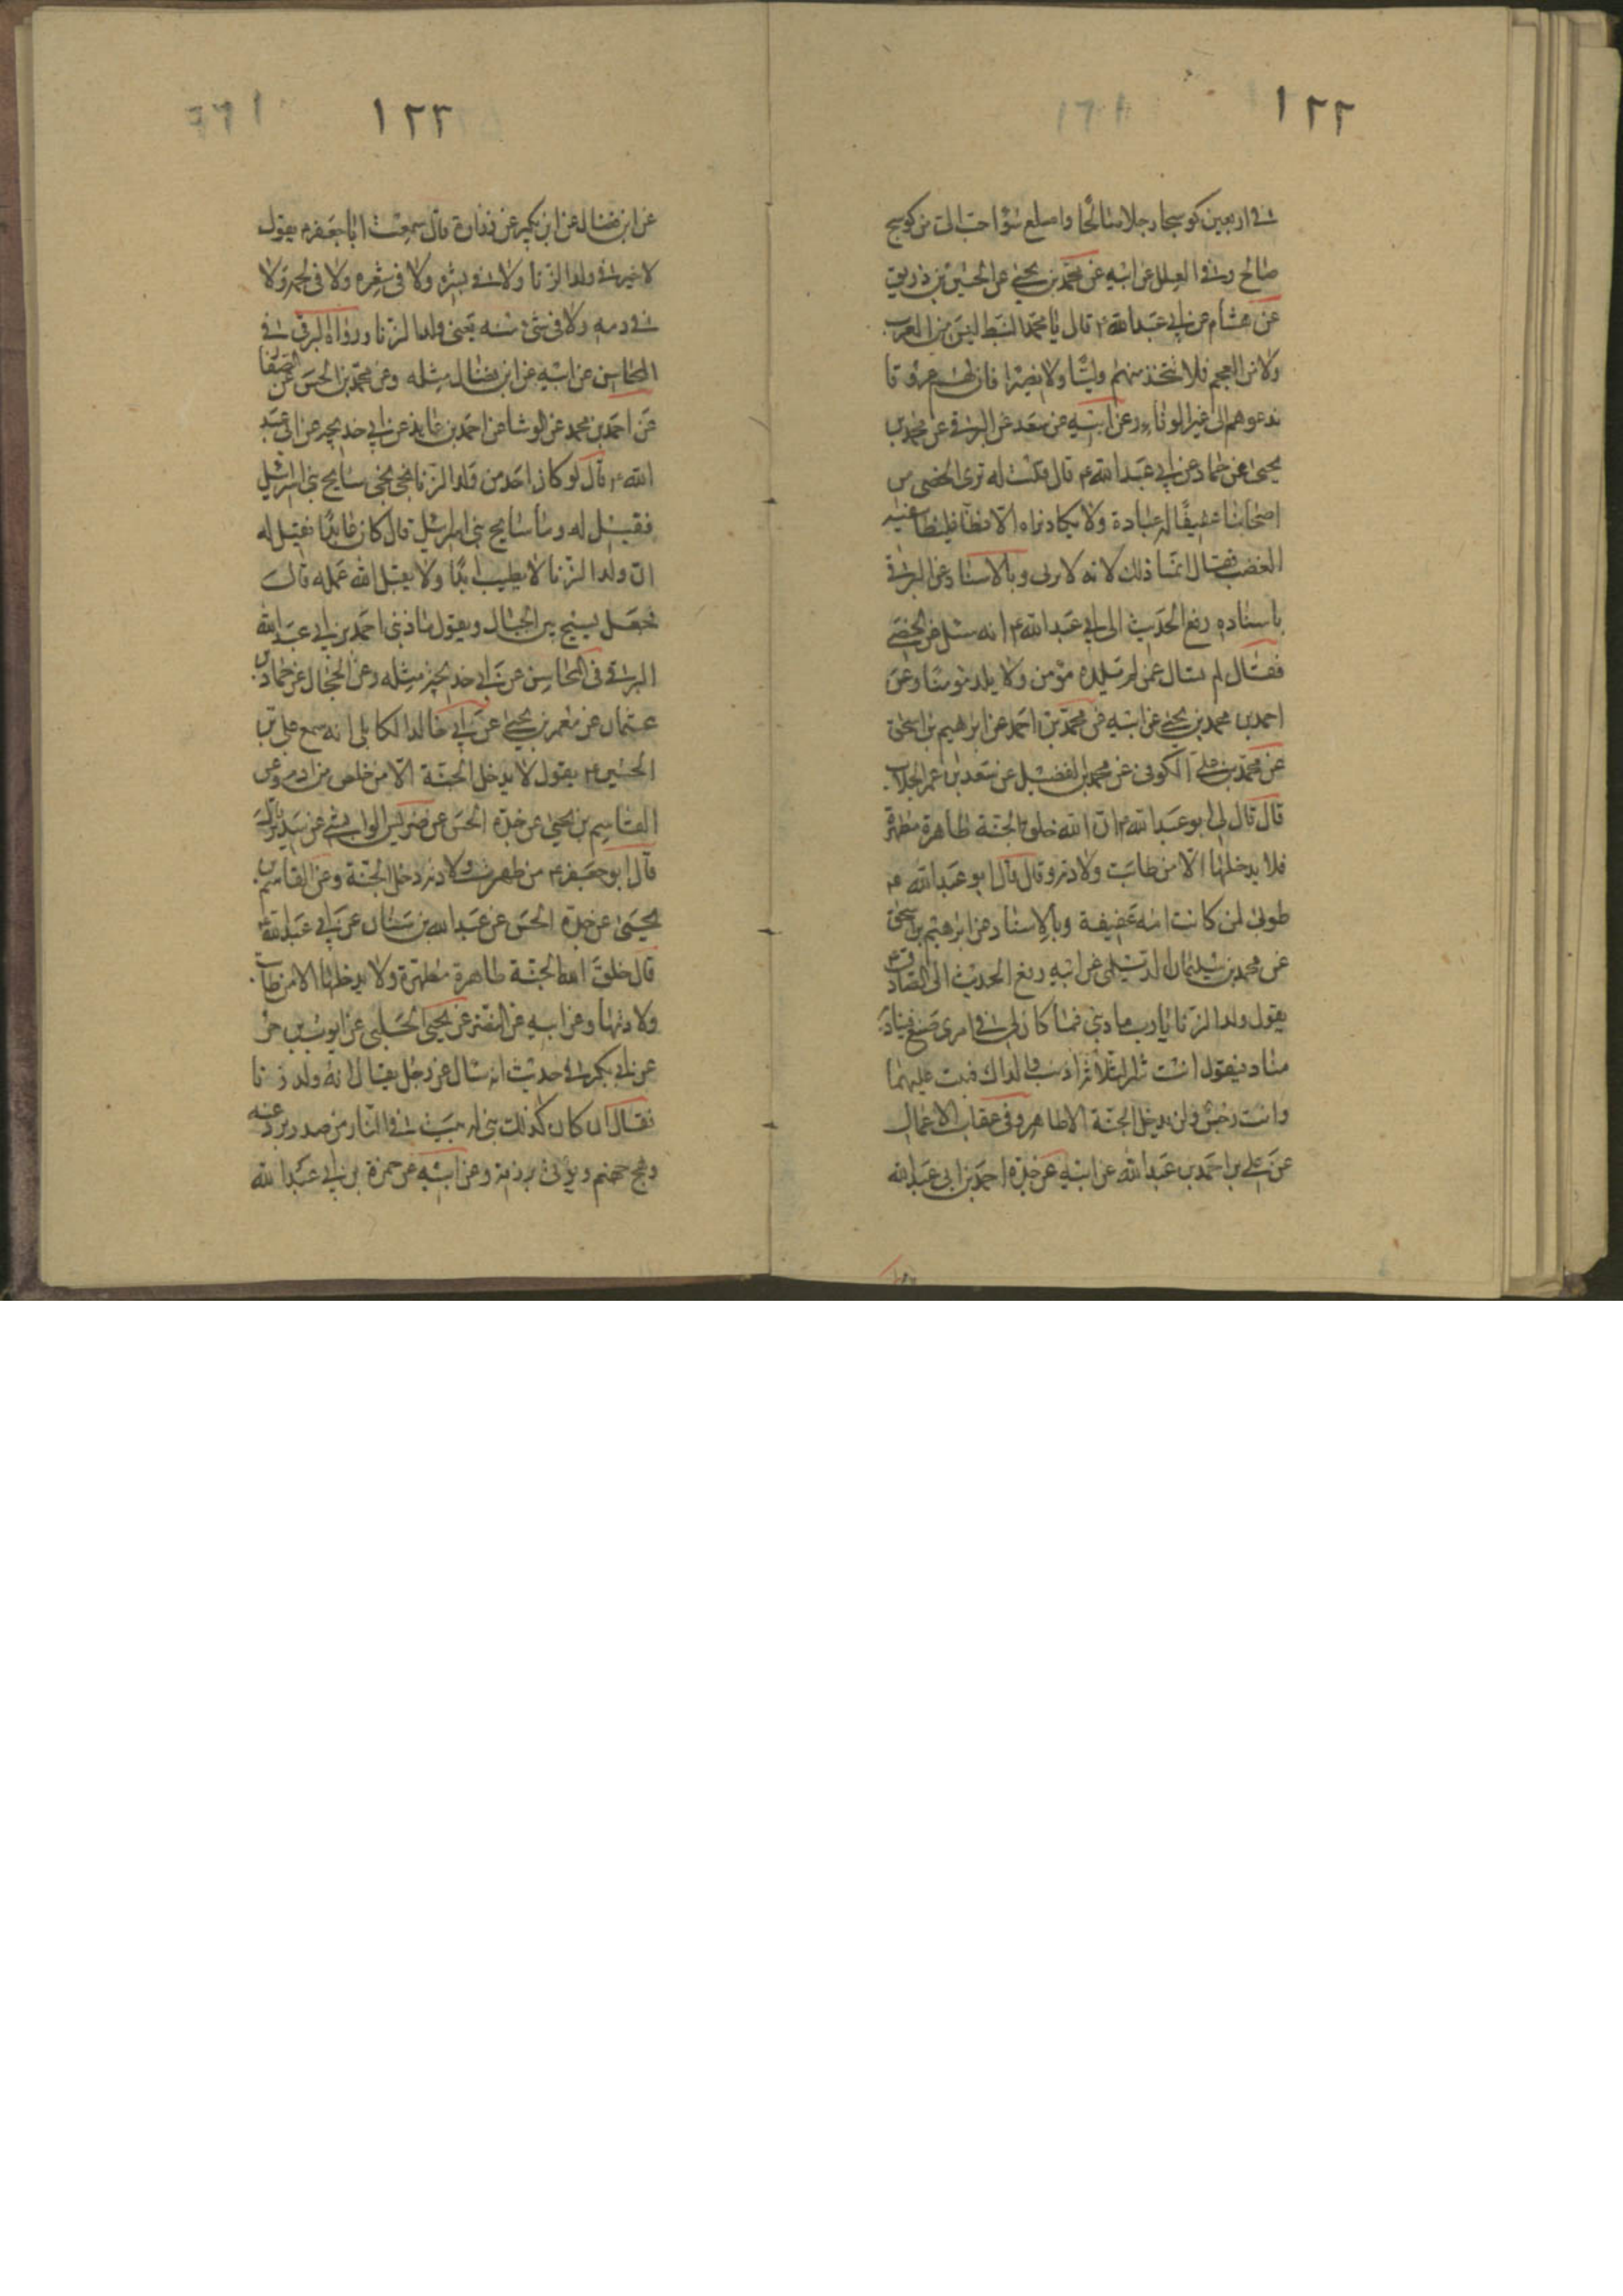 ١٢٢
في اربعين كوسجا رجلا صالحا واصلع سوء احب الي من كوسج
صالح وفي العلل عن ابيه عن محمد بن يحيى عن الحسين بن زريق
عن هشام عن ابي عبدالله ع قال يا محمد النبط ليس من العرب
ولا من العجم فلا تتخذ منهم وليا ولا نصيرا فان لهم عروقا
تدعوهم الى غير الوفاء وعن ابيه عن سعد عن البرقي عن محمد بن
يحيى عن حماد عن ابي عبدالله ع قال قلت له ترى الخصي من
اصحابنا عفيفا له عبادة ولا يكاد نراه الا فظا غليظا
الغضب فقال انما ذلك لانه لا يزني وبالاسناد عن البرقي
باسناده رفع الحديث الى ابي عبدالله ع انه سئل عن الخصي
فقال لم تسال عمن لم يلده مؤمن ولا يلد مؤمنا وعن
احمد بن محمد بن يحيى عن ابيه عن محمد بن احمد عن ابرهيم بن اسحق
عن محمد بن علي الكوفي عن محمد بن الفضيل عن سعد بن عمر الجلاب
قال قال لي ابو عبدالله ع ان الله خلق الجنة طاهرة مطهرة
فلا يدخلها الا من طابت ولادته وقال قال ابو عبدالله ع
طوبى لمن كانت امه عفيفة وبالاسناد عن ابرهيم بن اسحق
عن محمد بن سليمان الديلمي عن ابيه رفع الحديث الى الصادق ع
يقول ولد الزنا يا رب ما ذنبي فما كان لي في امري صنع فيناديه
مناد فيقول انت شر الثلاثة اذنب والداك فنبت عليهما
وانت رجس ولن يدخل الجنة الا طاهر وفي عقاب الاعمال
عن علي بن احمد بن عبدالله عن ابيه عن جده احمد بن ابي عبدالله
١٢٣
عن ابن فضال عن ابن بكير عن زرارة قال سمعت ابا جعفر ع يقول
لا خير في ولد الزنا ولا في بشره ولا في شعره ولا في لحمه ولا
في دمه ولا في شيء منه يعني ولد الزنا ورواه البرقي في
المحاسن عن ابيه عن ابن فضال مثله وعن محمد بن الحسن عن الصفار
عن احمد بن محمد عن الوشا عن احمد بن عايذ عن ابي خديجه عن ابي عبد
الله ع قال لو كان احد من ولد الزنا نجى نجى سايح بني اسرائيل
فقيل له وما سايح بني اسرائيل قال كان عابدا فقيل له
ان ولد الزنا لا يطيب ابدا ولا يقبل الله عمله قال
فجعل يسيح بين الجبال ويقول ما ذنبي احمد بن ابي عبدالله
البرقي في المحاسن عن ابي خديجة مثله وعن الحجال عن حماد بن
عثمان عن معمر بن يحيى عن ابي خالد الكابلي انه سمع علي بن
الحسين ع يقول لا يدخل الجنة الا من خلص من ادم وعن
القاسم بن يحيى عن جده الحسن عن ضريس الوابشي عن سدير قال
قال ابو جعفر ع من طهرت ولادته دخل الجنة وعن القاسم بن
يحيى عن جده الحسن عن عبدالله بن سنان عن ابي عبدالله ع
قال خلق الله الجنة طاهرة مطهرة ولا يدخلها الا من طابت
ولادتها وعن ابيه عن النضر عن يحيى الحلبي عن ايوب بن حر
عن ابي بكر في حديث انه سال عن رجل يقال انه ولد زنا
فقال ان كان كذلك بني له بيت في النار من صدر يرد عنه
وهج جهنم ويؤتى برزقه وعن ابيه عن حمزة بن ابي عبدالله